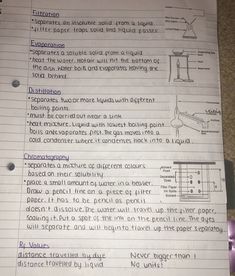 Filtration
• separates an insoluble solid from a liquid
• filter paper traps solid and liquid passes
Evaporation
• separates a soluble solid from a liquid
• heat the water, hot air will hit the bottom of
the dish, water boils and evaporates leaving the
solid behind.
Distillation
• separates two or more liquids with different
boiling points
• must be carried out near a sink
• heat mixture, liquid with lowest boiling point
boils and evaporates first. The gas moves into a
cold condenser where it condenses back into a liquid.
Chromatography
• separates a mixture of different colours
based on their solubility.
• place a small amount of water in a beaker.
Draw a pencil line on a piece of filter
paper. It has to be pencil as pencil
doesn't dissolve. The water will travel up the filter paper,
soaking it. Put a spot of the ink on the pencil line. The dyes
will separate and will begin to travel up the paper separately.
Rf Values
distance travelled by dye Never bigger than 1
distance travelled by liquid No units!